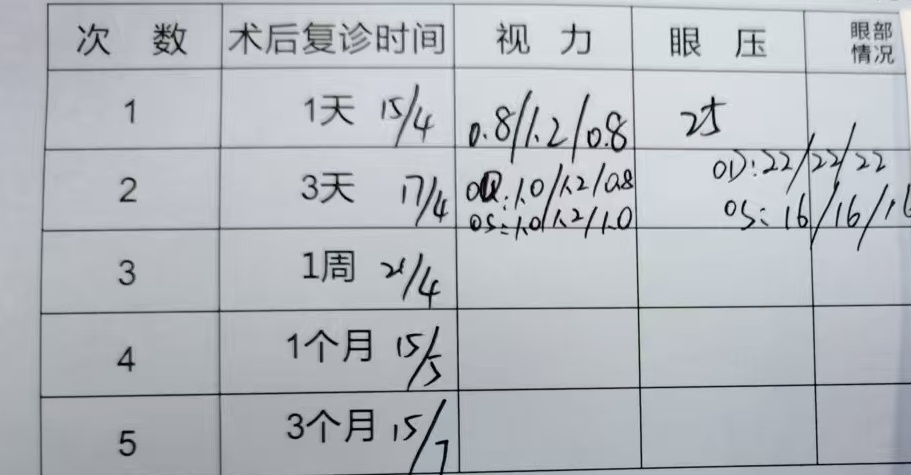 次 数 术后复诊时间 视 力 眼 压 眼部情况
1 1天 15/4 0.8/1.2/0.8 25
2 3天 17/4 OD:1.0/1.2/0.8 OD:22/22/22
OS:1.0/1.2/1.0 OS:16/16/16
3 1周 21/4
4 1个月 15/5
5 3个月 15/7